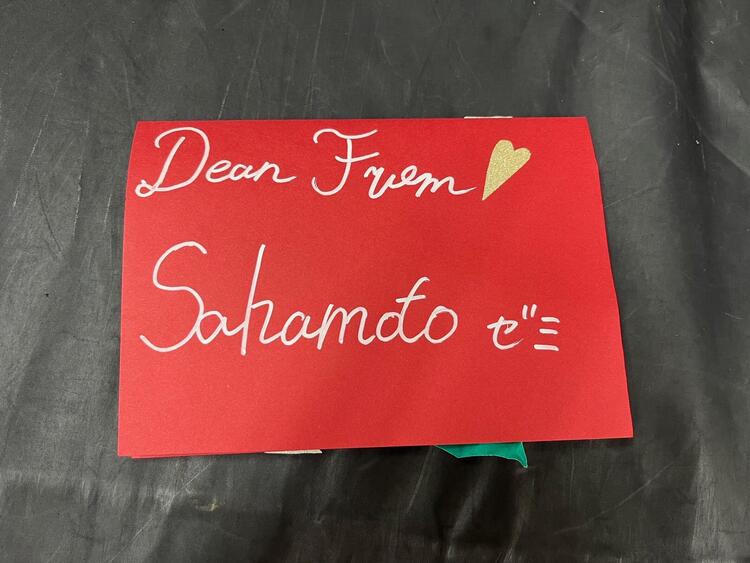 Dean From
Sakamoto ゼミ